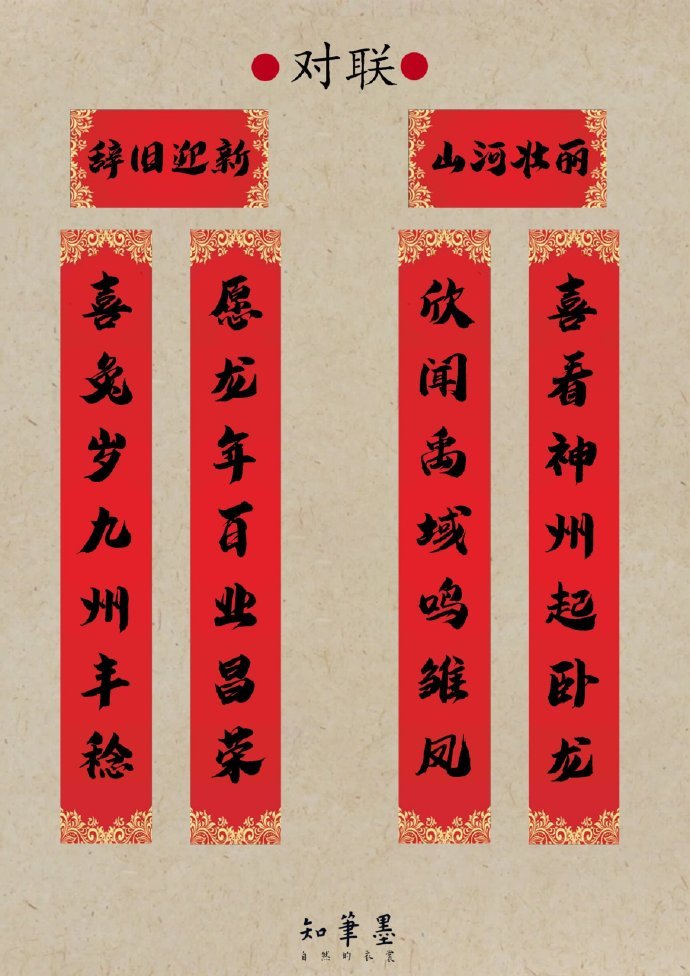 对联
辞旧迎新
喜兔岁九州丰稔
愿龙年百业昌荣
山河壮丽
欣闻禹域鸣雏凤
喜看神州起卧龙
知筆墨
自然的衣裳